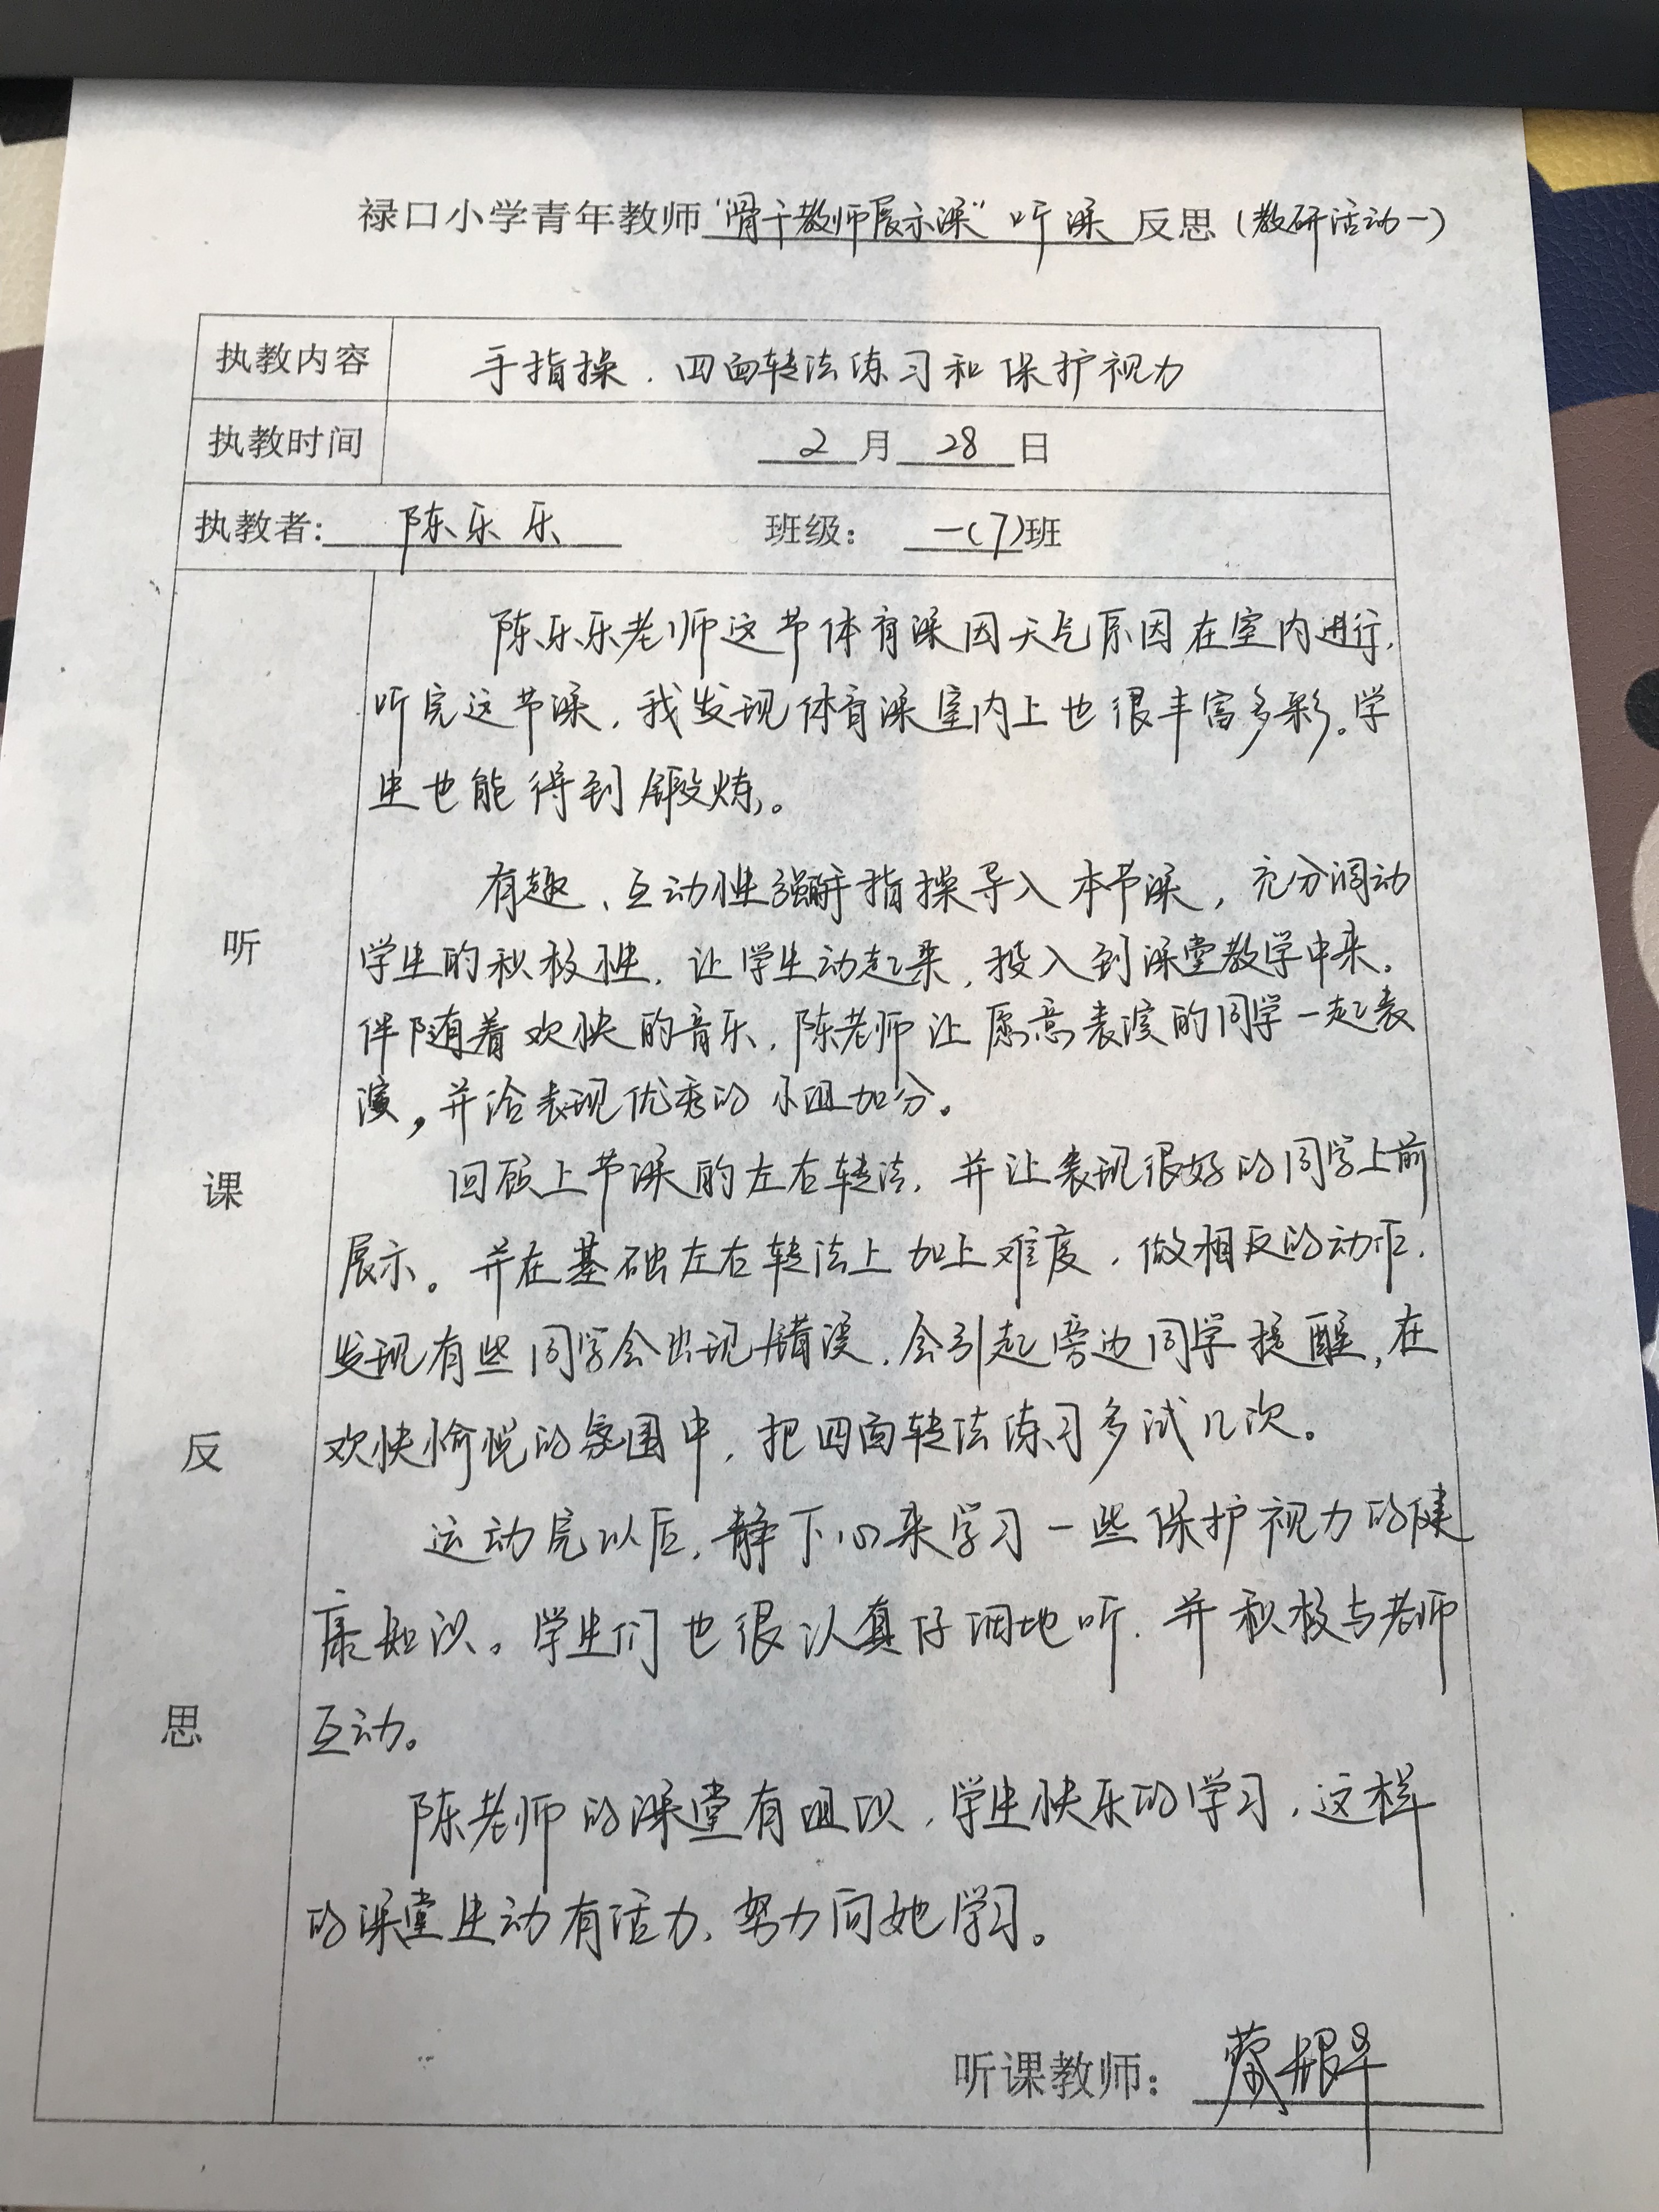 禄口小学青年教师“骨干教师展示课”听课反思(教研活动一)
执教内容 手指操、四面转法练习和保护视力
执教时间 2月28日
执教者: 陈乐乐 班级: 一(7)班
听课反思
陈乐乐老师这节体育课因天气原因在室内进行,
听完这节课,我发现体育课室内上也很丰富多彩。学
生也能得到锻炼。
有趣、互动性强手指操导入本节课,充分调动
学生的积极性,让学生动起来,投入到课堂教学中来。
伴随着欢快的音乐,陈老师让愿意表演的同学一起表
演,并给表现优秀的小组加分。
回顾上节课的左右转法,并让表现很好的同学上前
展示。并在基础左右转法上加上难度,做相反的动作,
发现有些同学会出现错误,会引起旁边同学提醒,在
欢快愉悦的氛围中,把四面转法练习多试几次。
运动完以后,静下心来学习一些保护视力的健
康知识。学生们也很认真仔细地听,并积极与老师
互动。
陈老师的课堂有组织,学生快乐的学习,这样
的课堂生动有活力,努力向她学习。
听课教师: